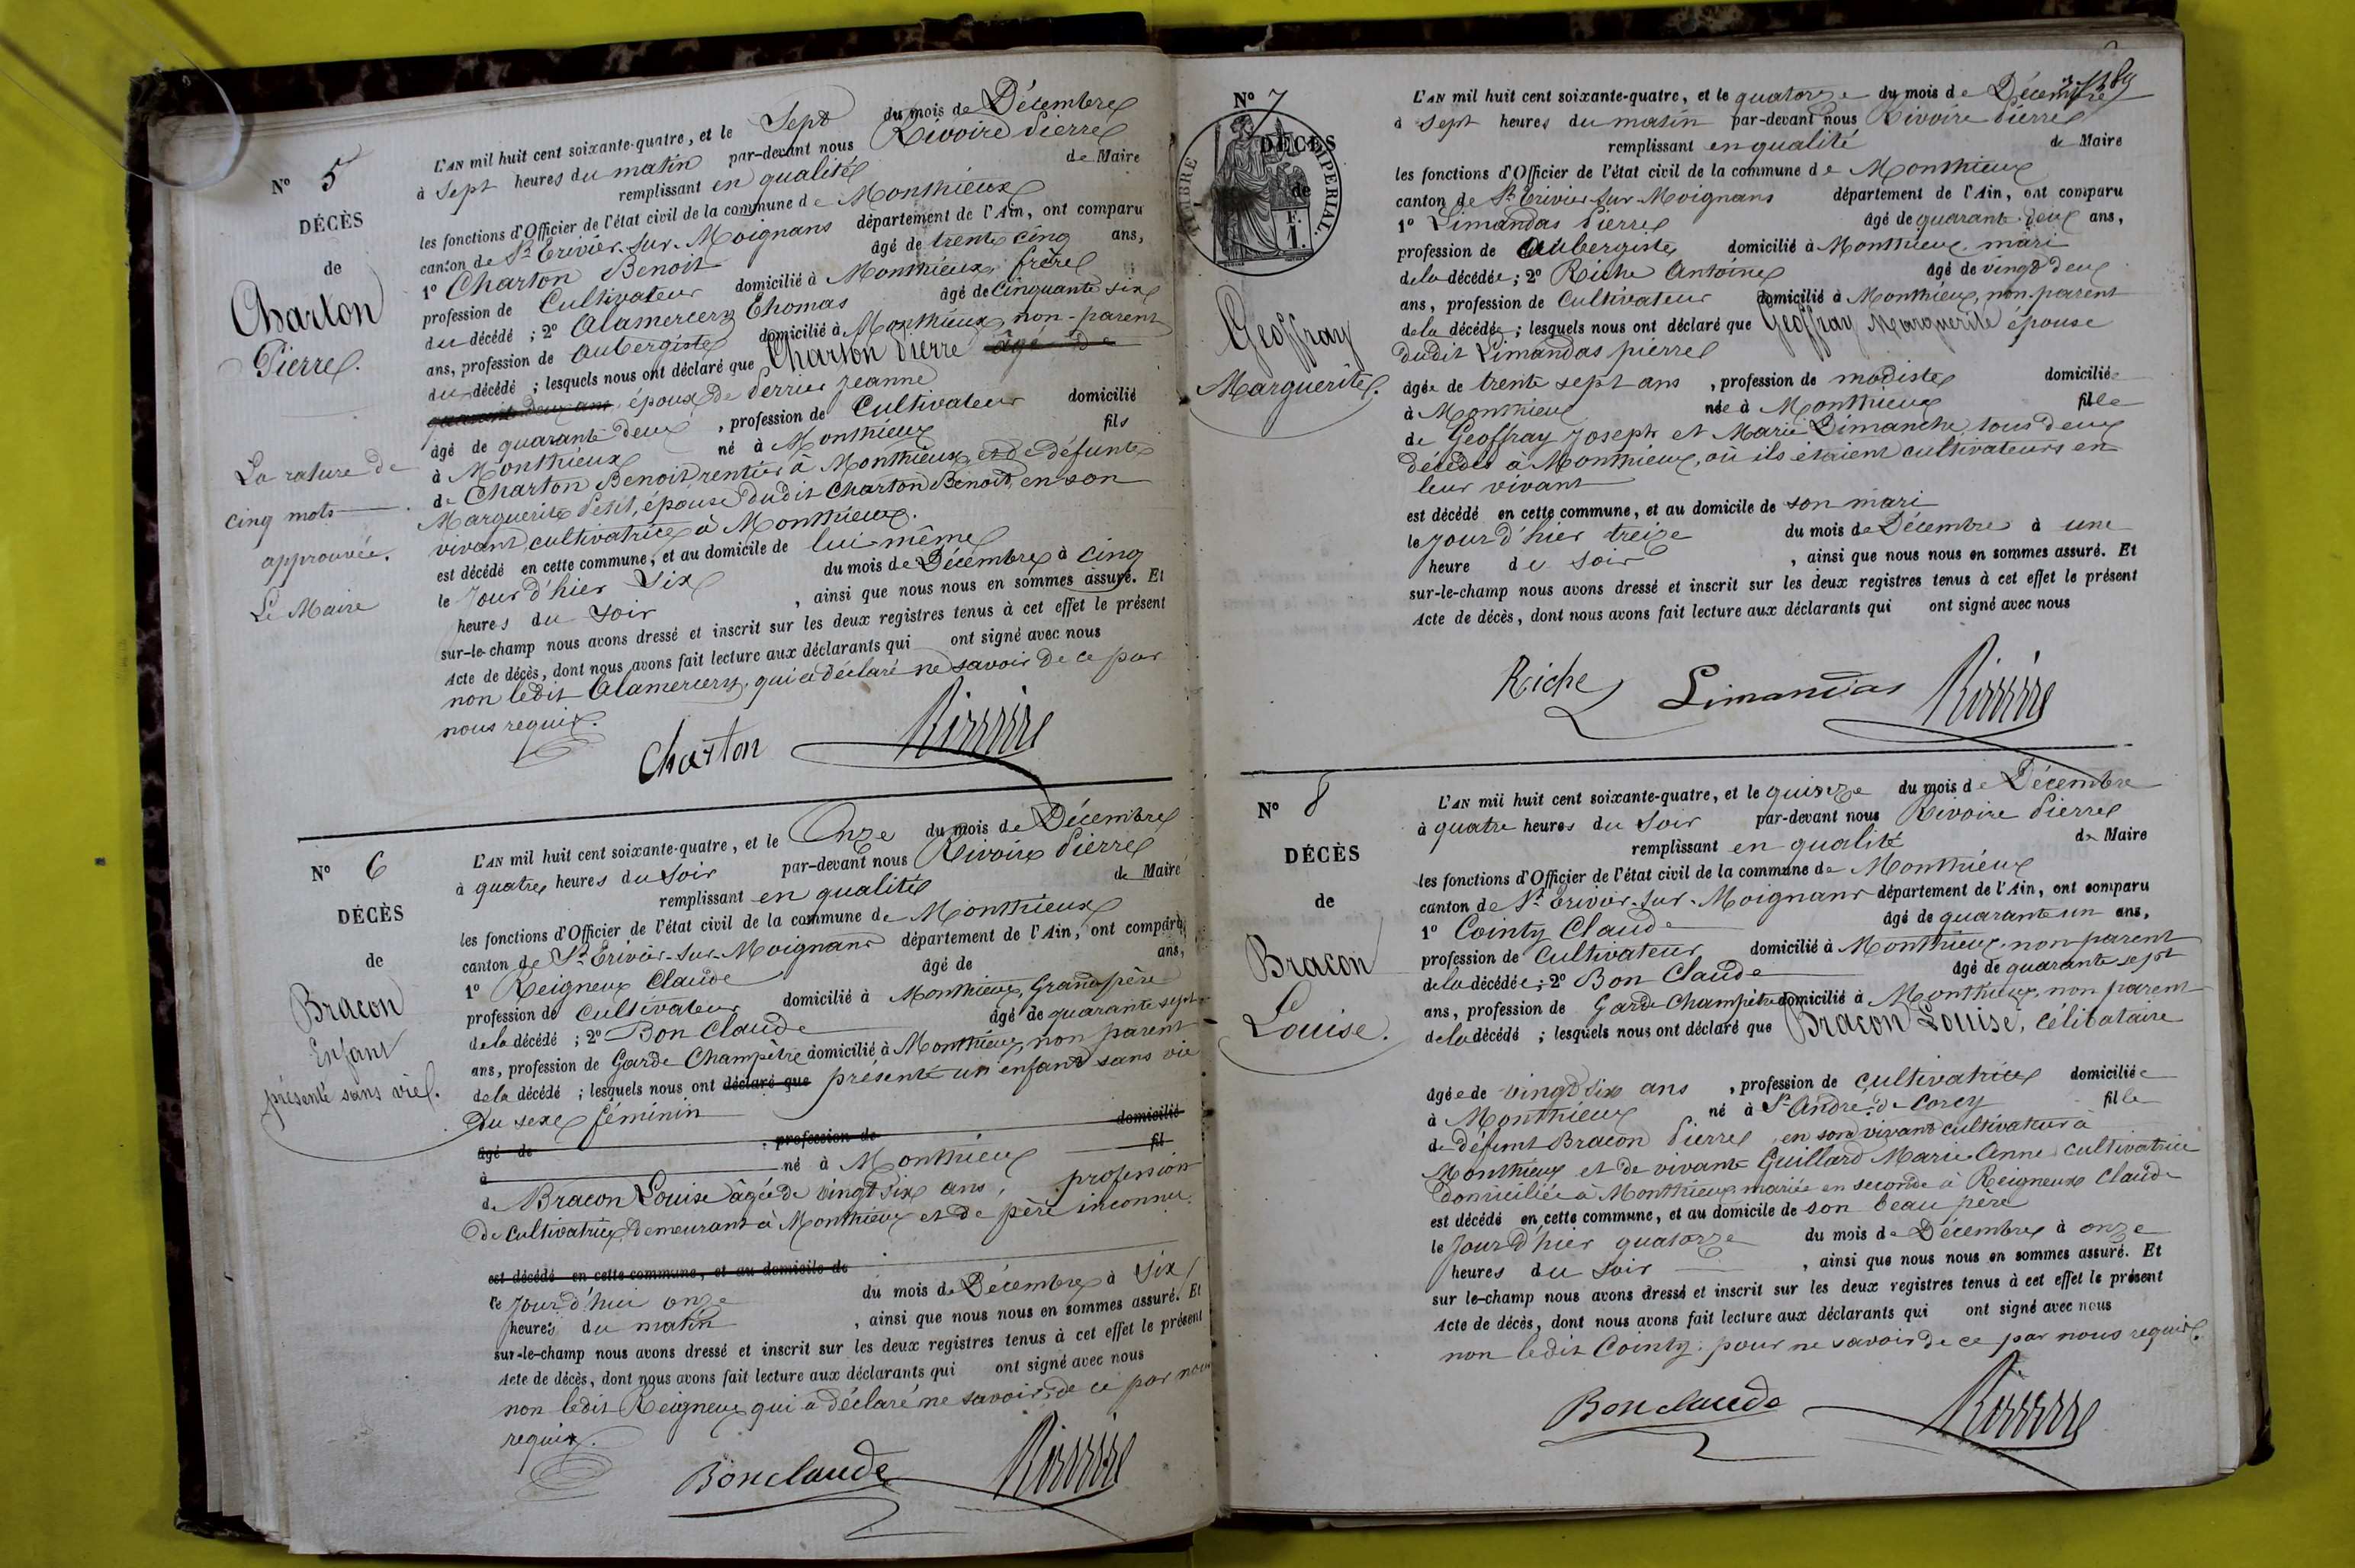 N° 5
DÉCÈS
de
Charton
Pierre.
La rature de
cinq mots
approuvée.
Le Maire
L'AN mil huit cent soixante-quatre, et le Sept du mois de Décembre
à Sept heures du matin par-devant nous Rivoire Pierre
remplissant en qualité de Maire
les fonctions d'Officier de l'état civil de la commune de Monthieux
canton de St Trivier-sur-Moignans département de l'Ain, ont comparu
1° Charton Benoit âgé de trente cinq ans,
profession de Cultivateur domicilié à Monthieux, frère
du décédé ; 2° Alamercery Thomas âgé de Cinquante six
ans, profession de Aubergiste domicilié à Monthieux, non-parent
du décédé ; lesquels nous ont déclaré que Charton Pierre âgé de
quarante deux ans, époux de Perrier Jeanne
âgé de quarante deux , profession de Cultivateur domicilié
à Monthieux né à Monthieux fils
de Charton Benoit rentier à Monthieux et de défunte
Marguerite Petit, épouse dudit Charton Benoit, en son
vivant cultivatrice à Monthieux.
est décédé en cette commune, et au domicile de lui-même
le Jour d'hier Six du mois de Décembre à cinq
heures du soir , ainsi que nous nous en sommes assuré. Et
sur-le-champ nous avons dressé et inscrit sur les deux registres tenus à cet effet le présent
Acte de décès, dont nous avons fait lecture aux déclarants qui ont signé avec nous
non ledit Alamercery, qui a déclaré ne savoir de ce par
nous requis.
Charton Rivoire
N° 6
DÉCÈS
de
Bracon
Enfant
présenté sans vie.
L'AN mil huit cent soixante-quatre, et le Onze du mois de Décembre
à quatre heures du Soir par-devant nous Rivoire Pierre
remplissant en qualité de Maire
les fonctions d'Officier de l'état civil de la commune de Monthieux
canton de St Trivier-sur-Moignans département de l'Ain, ont comparu
1° Reigneux Claude âgé de ans,
profession de Cultivateur domicilié à Monthieux, Grand-père
de la décédé ; 2° Bon Claude âgé de quarante sept
ans, profession de Garde Champêtre domicilié à Monthieux, non parent
de la décédé ; lesquels nous ont déclaré que présenté un enfant sans vie
Du sexe féminin
âgé de , profession de domicilié
à né à Monthieux fil
de Bracon Louise âgée de vingt six ans, profession
de cultivatrice, demeurant à Monthieux et de père inconnu.
est décédé en cette commune, et au domicile de
le Jour d'hui onze du mois de Décembre à Six
heures du matin , ainsi que nous nous en sommes assuré. Et
sur-le-champ nous avons dressé et inscrit sur les deux registres tenus à cet effet le présent
Acte de décès, dont nous avons fait lecture aux déclarants qui ont signé avec nous
non ledit Reigneux qui a déclaré ne savoir, de ce par nous
requis.
Bon claude Rivoire
N° 7
DÉCÈS
de
TIMBRE IMPERIAL.
1 F.
Geoffray
Marguerite.
L'AN mil huit cent soixante-quatre, et le quatorze du mois de Décembre
à Sept heures du matin par-devant nous Rivoire Pierre
remplissant en qualité de Maire
les fonctions d'Officier de l'état civil de la commune de Monthieux
canton de St Trivier-sur-Moignans département de l'Ain, ont comparu
1° Limandas Pierre âgé de quarante-deux ans,
profession de Aubergiste domicilié à Monthieux, mari
de la décédée ; 2° Riche Antoine âgé de vingt deux
ans, profession de Cultivateur domicilié à Monthieux, non-parent
de la décédée ; lesquels nous ont déclaré que Geoffray Marguerite épouse
dudit Limandas pierre
âgée de trente sept ans , profession de modiste domiciliée
à Monthieux née à Monthieux fille
de Geoffray Joseph et Marie Dimanche tous deux
décédés à Monthieux, où ils étaient cultivateurs en
leur vivant
est décédé en cette commune, et au domicile de son mari
le Jour d'hier treize du mois de Décembre à une
heure du soir , ainsi que nous nous en sommes assuré. Et
sur-le-champ nous avons dressé et inscrit sur les deux registres tenus à cet effet le présent
Acte de décès, dont nous avons fait lecture aux déclarants qui ont signé avec nous
Riche Limandas Rivoire
N° 8
DÉCÈS
de
Bracon
Louise.
L'AN mil huit cent soixante-quatre, et le quinze du mois de Décembre
à quatre heures du Soir par-devant nous Rivoire Pierre
remplissant en qualité de Maire
les fonctions d'Officier de l'état civil de la commune de Monthieux
canton de St Trivier-sur-Moignans département de l'Ain, ont comparu
1° Cointy Claude âgé de quarante un ans,
profession de Cultivateur domicilié à Monthieux, non-parent
de la décédée ; 2° Bon Claude âgé de quarante sept
ans, profession de Garde Champêtre domicilié à Monthieux, non parent
de la décédé ; lesquels nous ont déclaré que Bracon Louise, célibataire
âgée de vingt six ans , profession de cultivatrice domiciliée
à Monthieux né à St André-de-Corcy fille
de défunt Bracon Pierre, en son vivant cultivateur à
Monthieux et de vivante Guillard Marie-Anne cultivatrice
domiciliée à Monthieux mariée en seconde à Reigneux Claude
est décédé en cette commune, et au domicile de son beau père
le Jour d'hier quatorze du mois de Décembre à onze
heures du Soir , ainsi que nous nous en sommes assuré. Et
sur le-champ nous avons dressé et inscrit sur les deux registres tenus à cet effet le présent
Acte de décès, dont nous avons fait lecture aux déclarants qui ont signé avec nous
non ledit Cointy, pour ne savoir de ce par nous requis.
Bon claude Rivoire